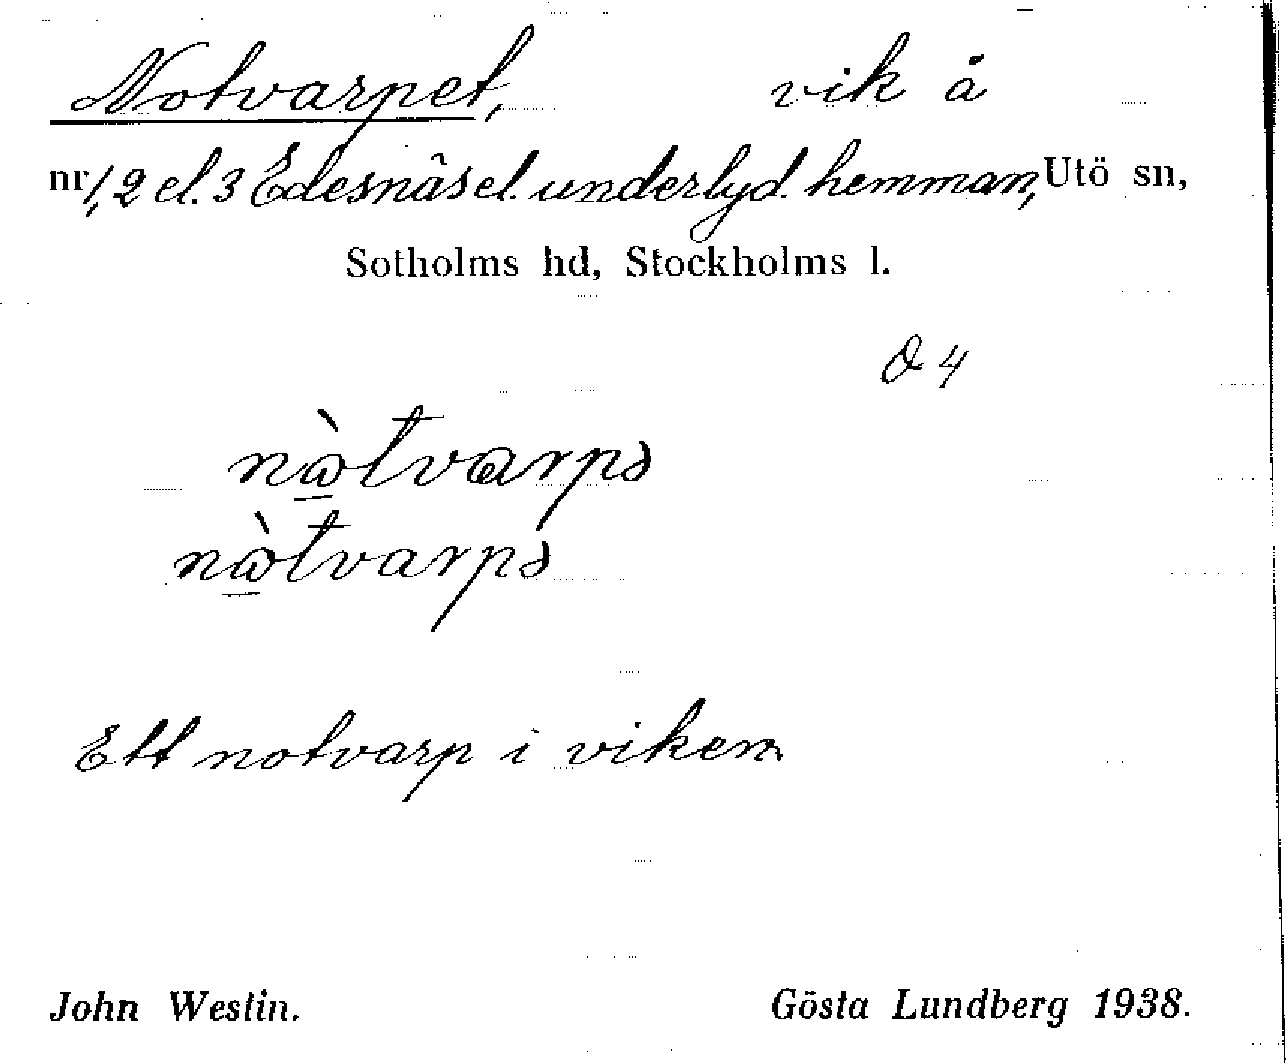 Notvarpet, vik å
nr 1, 2 el. 3 Edesnäs el. underlyd. hemman, Utö sn,
Sotholms hd, Stockholms l.
d 4
nὼtvarpə
nὼtvarpə
Ett notvarp i viken
John Westin. Gösta Lundberg 1938.